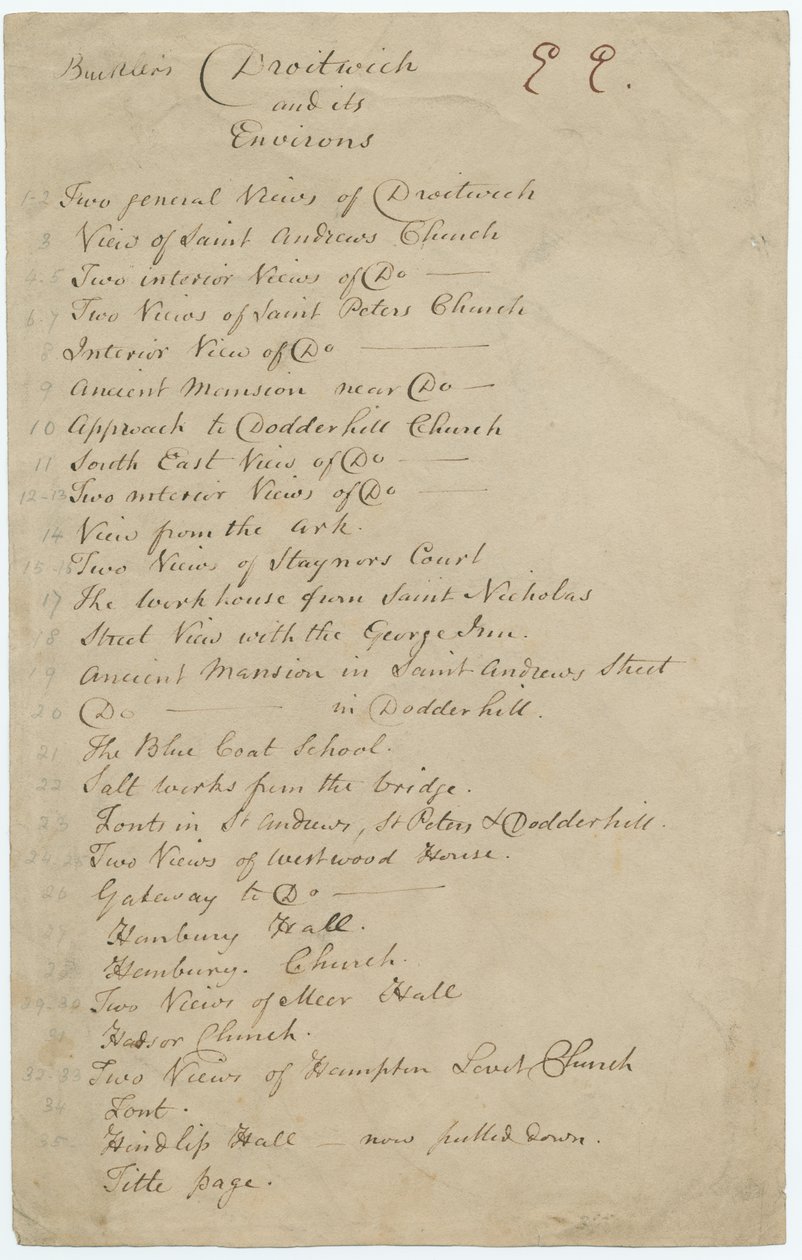 Buckler's Droitwich E E.
and its
Environs
1-2 Two general Views of Droitwich
3 View of Saint Andrews Church
4-5 Two interior Views of Do —
6-7 Two Views of Saint Peters Church
8 Interior View of Do —
9 Ancient Mansion near Do —
10 Approach to Dodderhill Church
11 South East View of Do —
12-13 Two interior Views of Do —
14 View from the Ark.
15-16 Two Views of Staynors Court
17 The Workhouse from Saint Nicholas
18 Street View with the George Inn.
19 Ancient Mansion in Saint Andrews Street
20 Do — in Dodderhill.
21 The Blue Coat School.
22 Salt works from the bridge.
23 Fonts in St Andrews, St Peters & Dodderhill.
24-25 Two Views of Westwood House.
26 Gateway to Do —
27 Hanbury Hall.
28 Hanbury. Church.
29-30 Two Views of Meer Hall
31 Hadsor Church.
32-33 Two Views of Hampton Lovet Church
34 Font.
35 Hindlip Hall — now pulled down.
Title page.